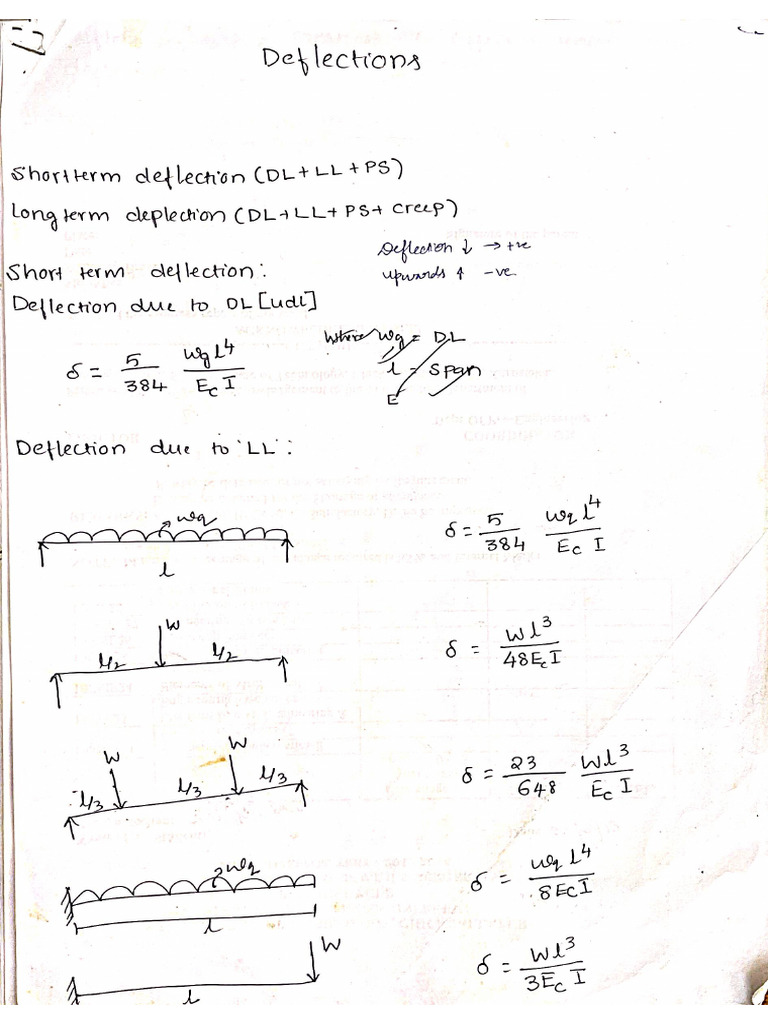 Deflections
Short term deflection (DL + LL + PS)
Long term deplection (DL + LL + PS + Creep)
Deflection ↓ → +ve
upwards ↑ -ve
Short term deflection:
Deflection due to DL [udl]
δ = 5/384 wg l⁴/Ec I
Where wg = DL
l = Span
E
Deflection due to 'LL':
wq
l
δ = 5/384 wq l⁴/Ec I
W
l/2 l/2
δ = Wl³/48Ec I
W W
l/3 l/3 l/3
δ = 23/648 Wl³/Ec I
wq
l
δ = wq l⁴/8Ec I
W
l
δ = Wl³/3Ec I